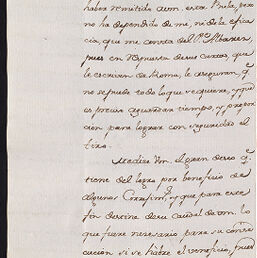 haber remitido aun esta Bula, pero
no ha dependido de mi, ni de la efica
cia, que me consta del Pe Albarez,
pues en respuesta de sus cartas, que
le escriven de Roma, le aseguran, q.
no se pudo todo lo que se quiere, y que
es preciso aguardar tiempo, y propor
cion para lograr con seguridad el
tiro.
Me dize Vm. el gran deseo q.
tiene del logro por beneficio de
algunas y que para este
fin de su caudal de Vm. lo
que fuere necesario para su conse
cucion si se fiare el veneficio, pued